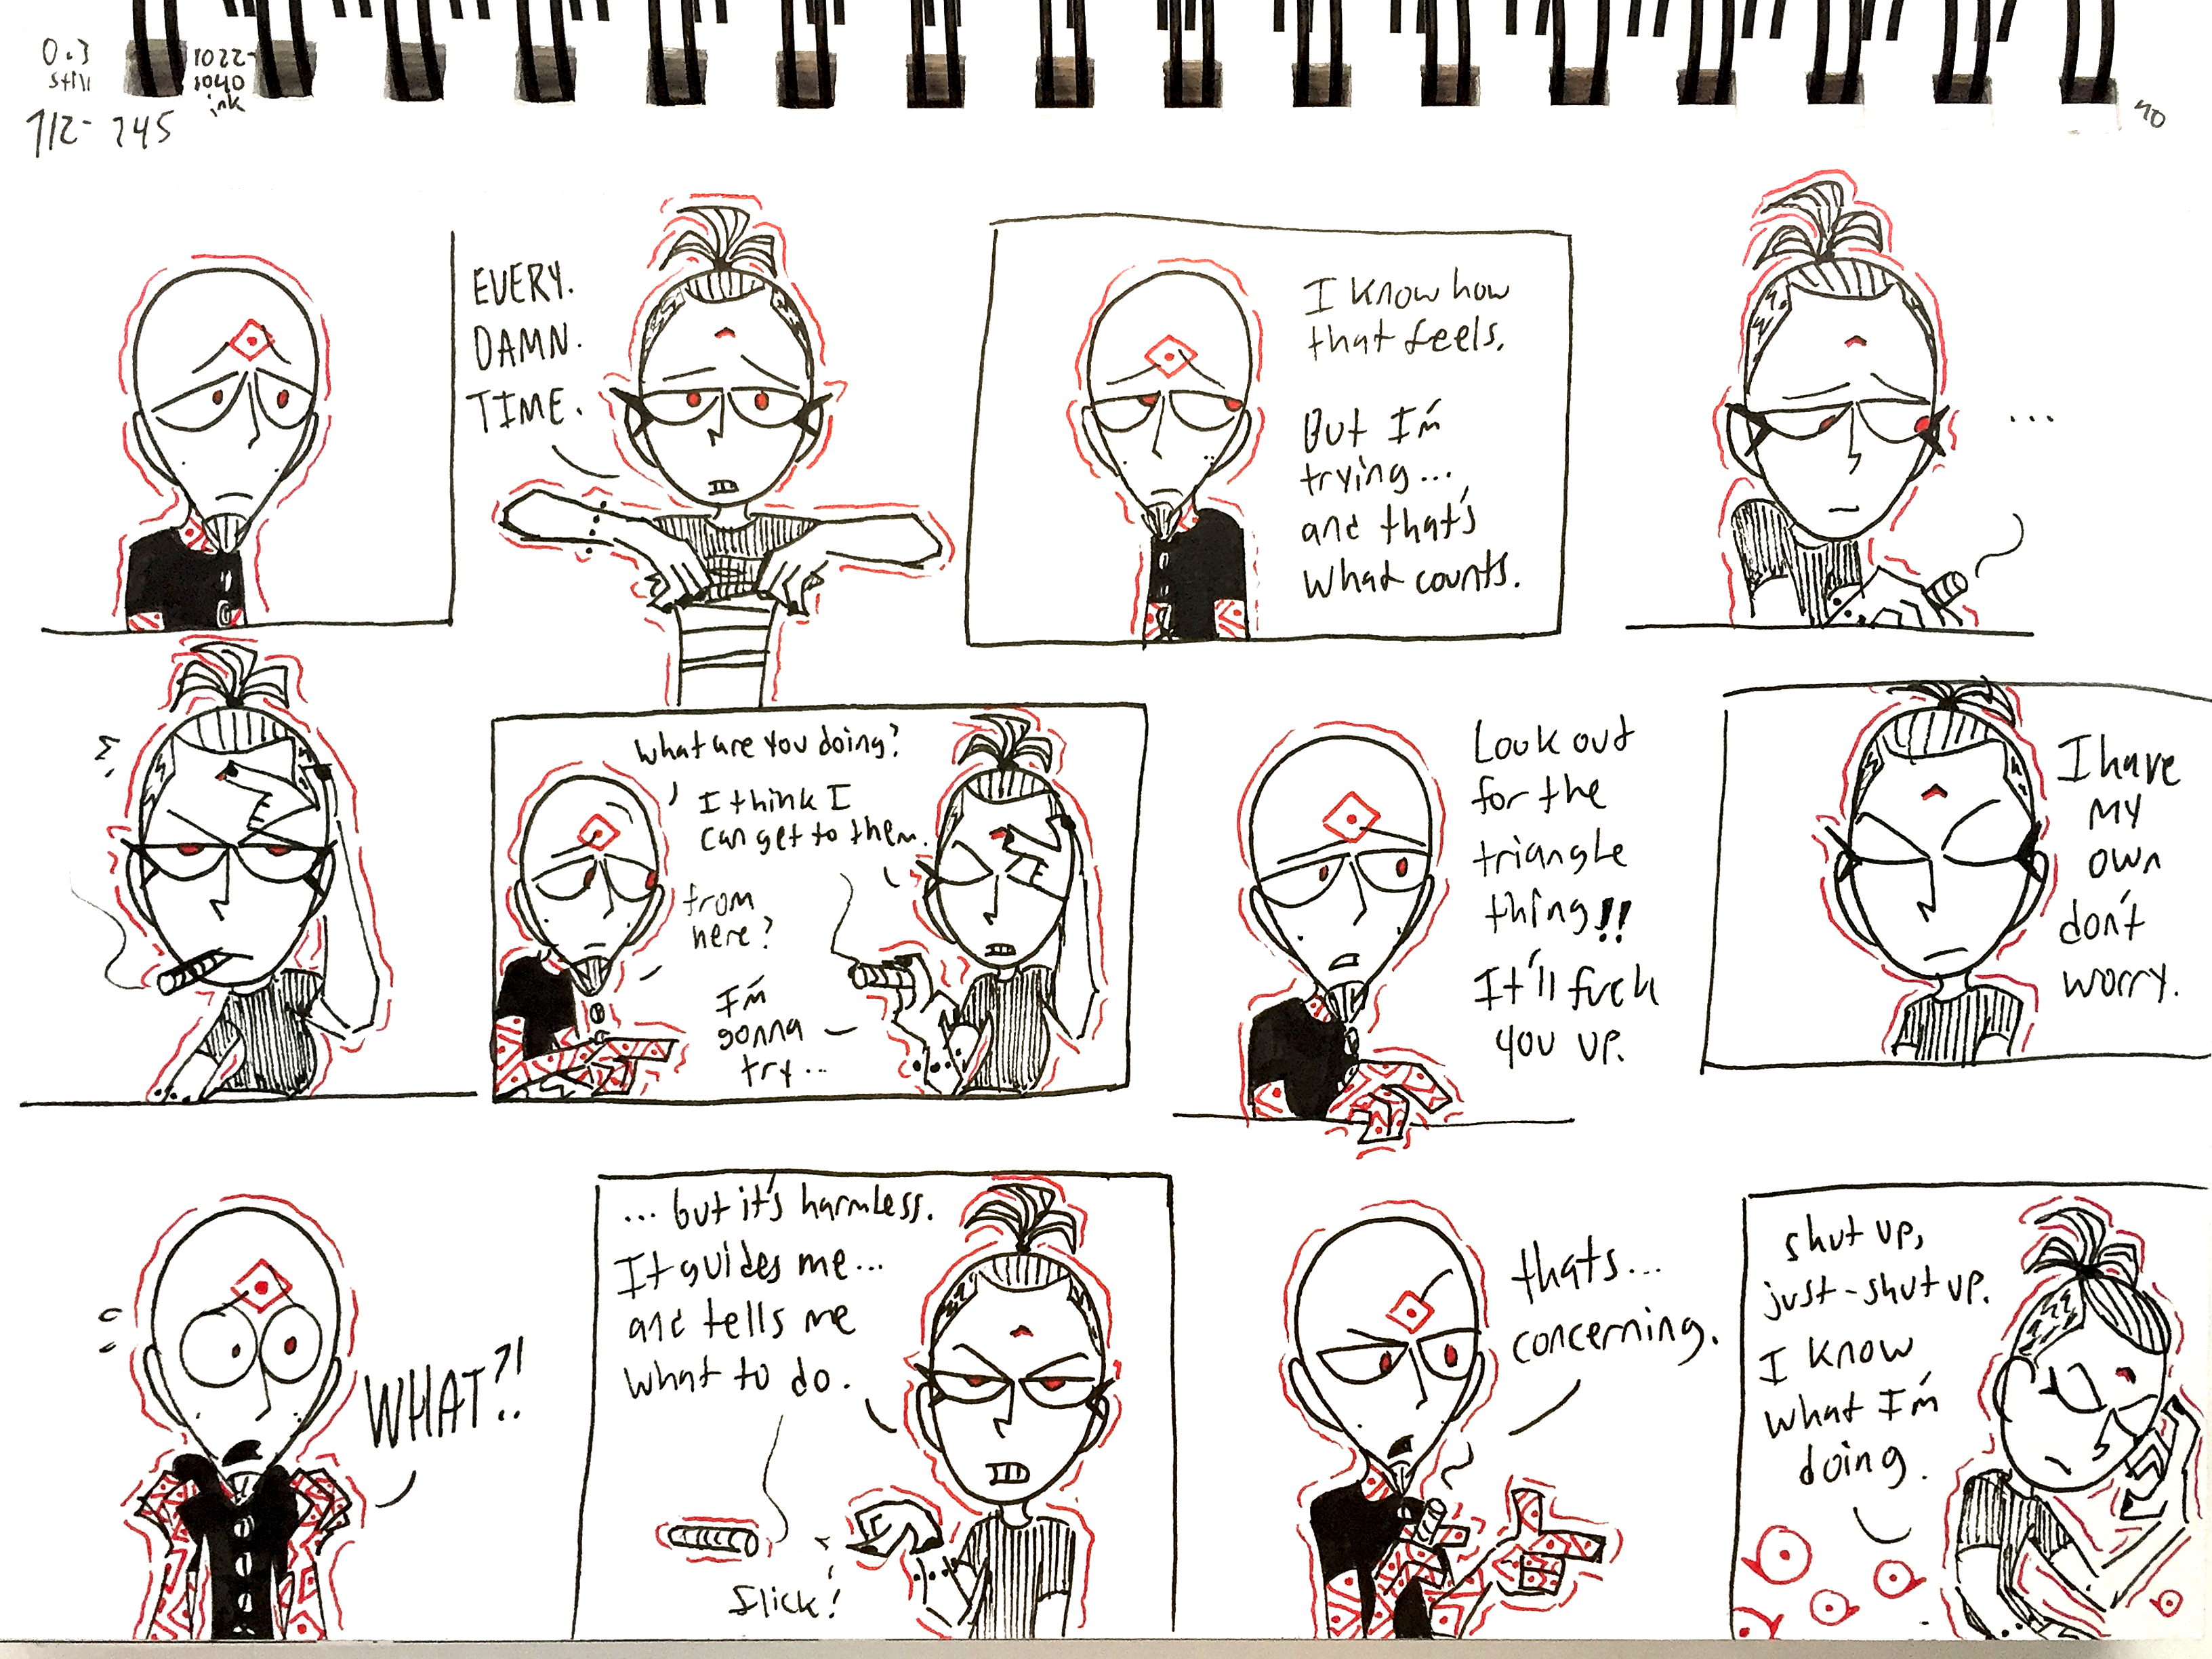 0.3
still
1022-
1040
ink
712- 745
40
EVERY.
DAMN.
TIME.
I know how
that feels.
But I'm
trying...
and that's
what counts.
...
what are you doing?
I think I
can get to them.
from
here?
I'm
gonna
try...
Look out
for the
triangle
thing!!
It'll fuck
you up.
I have
my
own
don't
worry.
WHAT?!
... but it's harmless.
It guides me...
and tells me
what to do.
flick!
thats...
concerning.
shut up,
just-shut up.
I know
what I'm
doing.